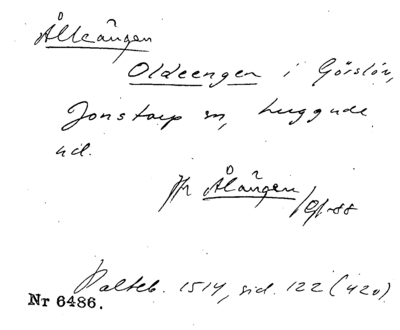 Ålleängen
Oldeengen i Görslöv,
Jonstorp sn, Luggude
hd.
jfr Ålängen
Palteb. 1514, sid. 122 (420)
Nr 6486.